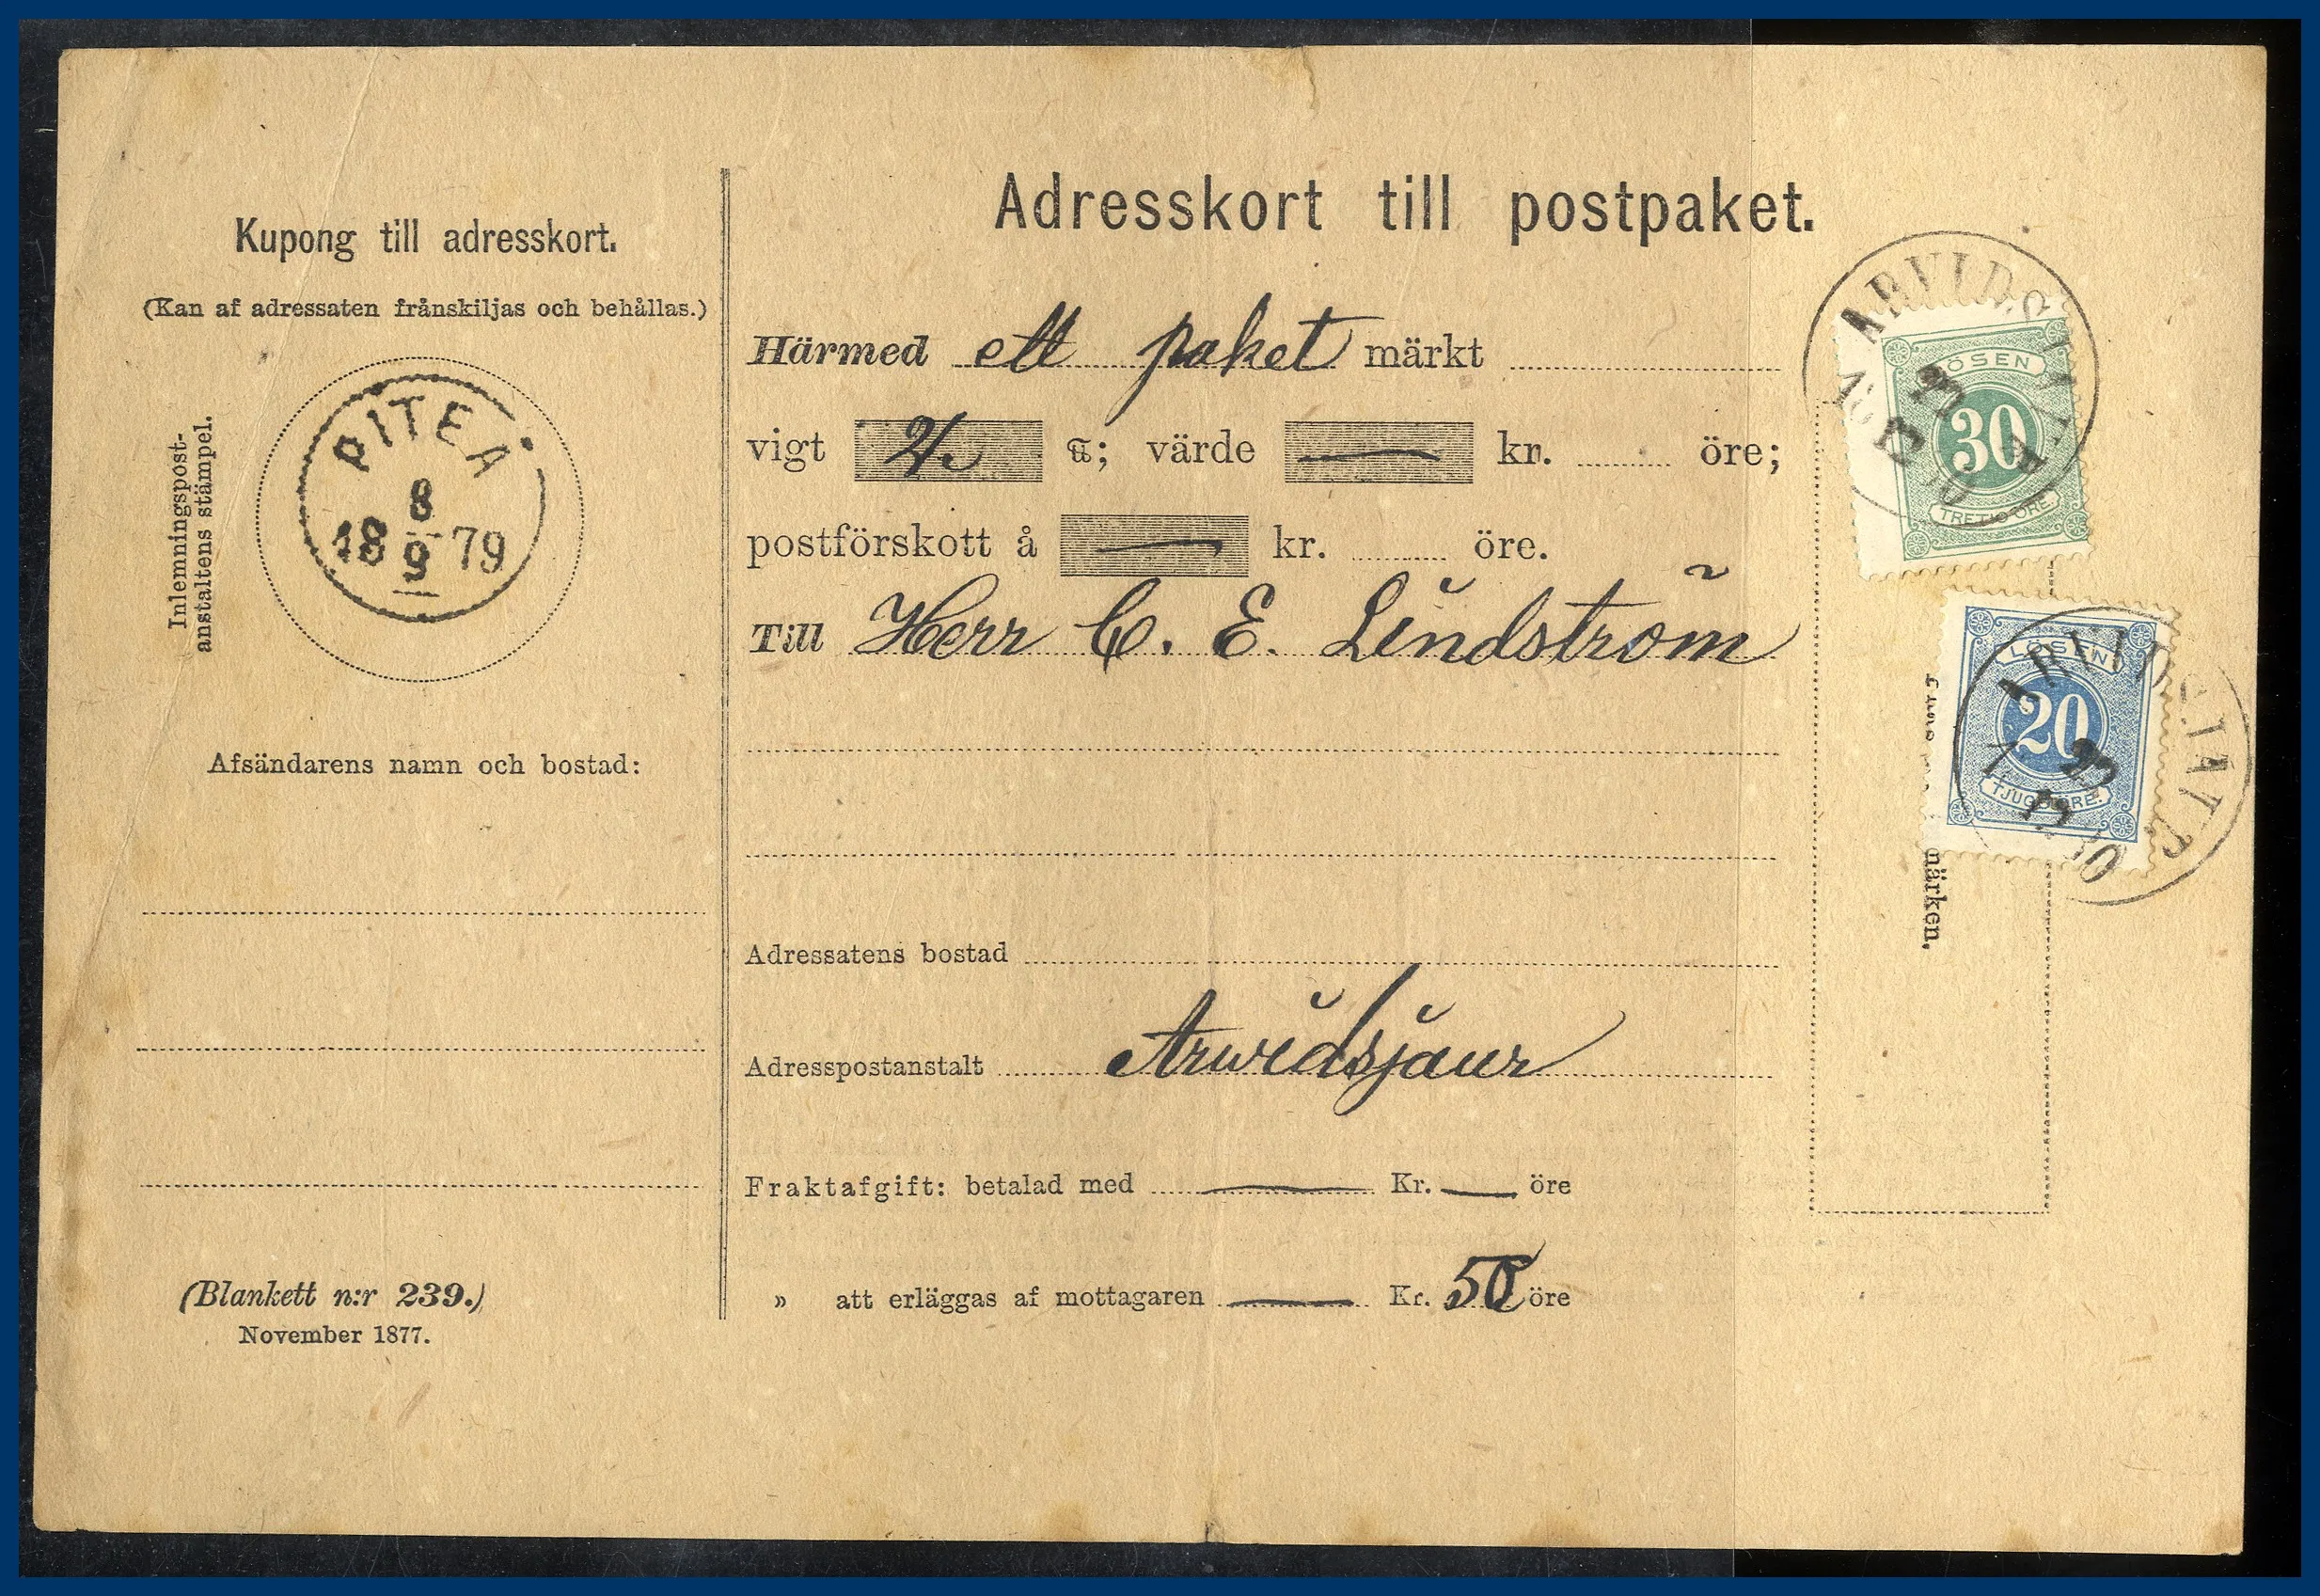 Kupong till adresskort.
(Kan af adressaten frånskiljas och behållas.)
Inlemningspost-
anstaltens stämpel.
PITEÅ
8
18 9 79
Afsändarens namn och bostad:
(Blankett n:r 239.)
November 1877.
Adresskort till postpaket.
Härmed ett paket märkt
vigt ℔; värde kr. öre;
postförskott å kr. öre.
Till Herr C. E. Lindström
Adressatens bostad
Adresspostanstalt Arwidsjaur
Fraktafgift: betalad med Kr. öre
» att erläggas af mottagaren Kr. 50 öre
LÖSEN
30
TRETIO ÖRE.
LÖSEN
20
TJUGO ÖRE.
märken.